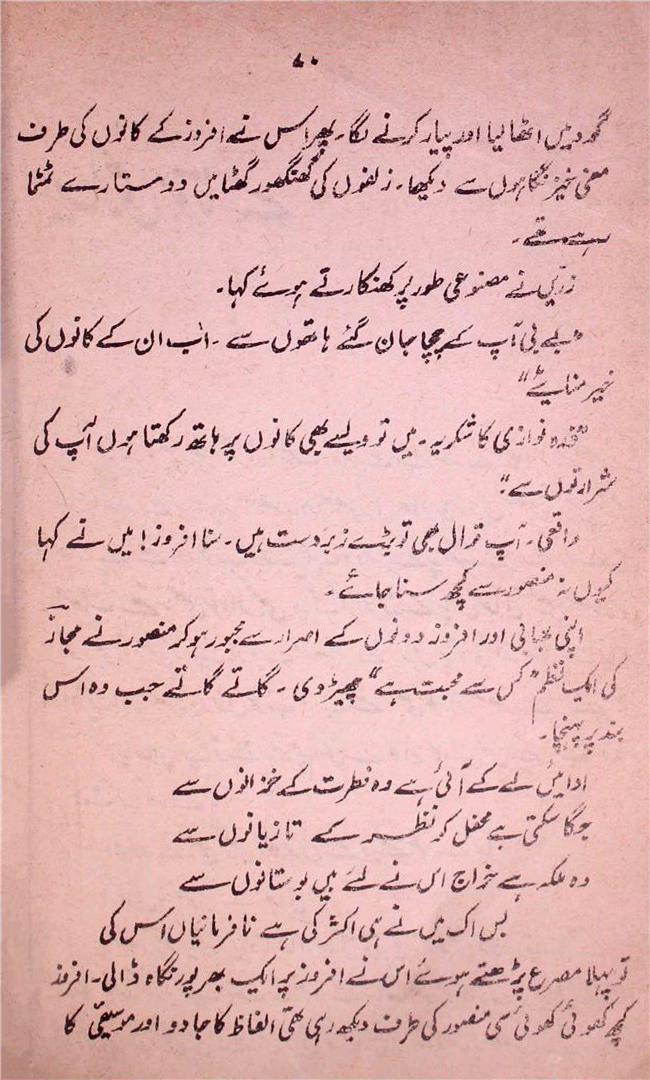 ۸۰
گود میں اٹھا لیا اور پیار کرنے لگا۔ پھر اس نے افروز کے کانوں کی طرف
معنی خیز نگاہوں سے دیکھا۔ زلفوں کی گھنگھور گھٹا میں دو ستارے ٹمٹما
رہے تھے۔
زریں نے مصنوعی طور پر کھنکارتے ہوئے کہا۔
"بے بی آپ کے چچا جان گئے ہاتھوں سے۔ اب ان کے کانوں کی
خیر منایئے"
"ذرہ نوازی کا شکریہ۔ میں تو ویسے بھی کانوں پر ہاتھ رکھتا ہوں آپ کی
شرارتوں سے"
واقعی۔ آپ قوال بھی تو بڑے زبردست ہیں۔ سنا افروز! میں نے کہا
کیوں نہ منصور سے کچھ سنا جائے۔
اپنی بھابی اور افروز دونوں کے اصرار سے مجبور ہو کر منصور نے مجازؔ
کی ایک نظم "کس سے محبت ہے" چھیڑ دی۔ گاتے گاتے جب وہ اس
بند پر پہنچا۔
ادائیں لے کے آئی ہے وہ فطرت کے خزانوں سے
جگا سکتی ہے محفل کو نظر کے تازیانوں سے
وہ ملکہ ہے خراج اس نے لئے ہیں بوستانوں سے
بس اک میں نے ہی اکثر کی ہے نافرمانیاں اس کی
تو پہلا مصرع پڑھتے ہوئے اس نے افروز پر ایک بھرپور نگاہ ڈالی۔ افروز
کچھ کھوئی کھوئی سی منصور کی طرف دیکھ رہی تھی الفاظ کا جادو اور موسیقی کا